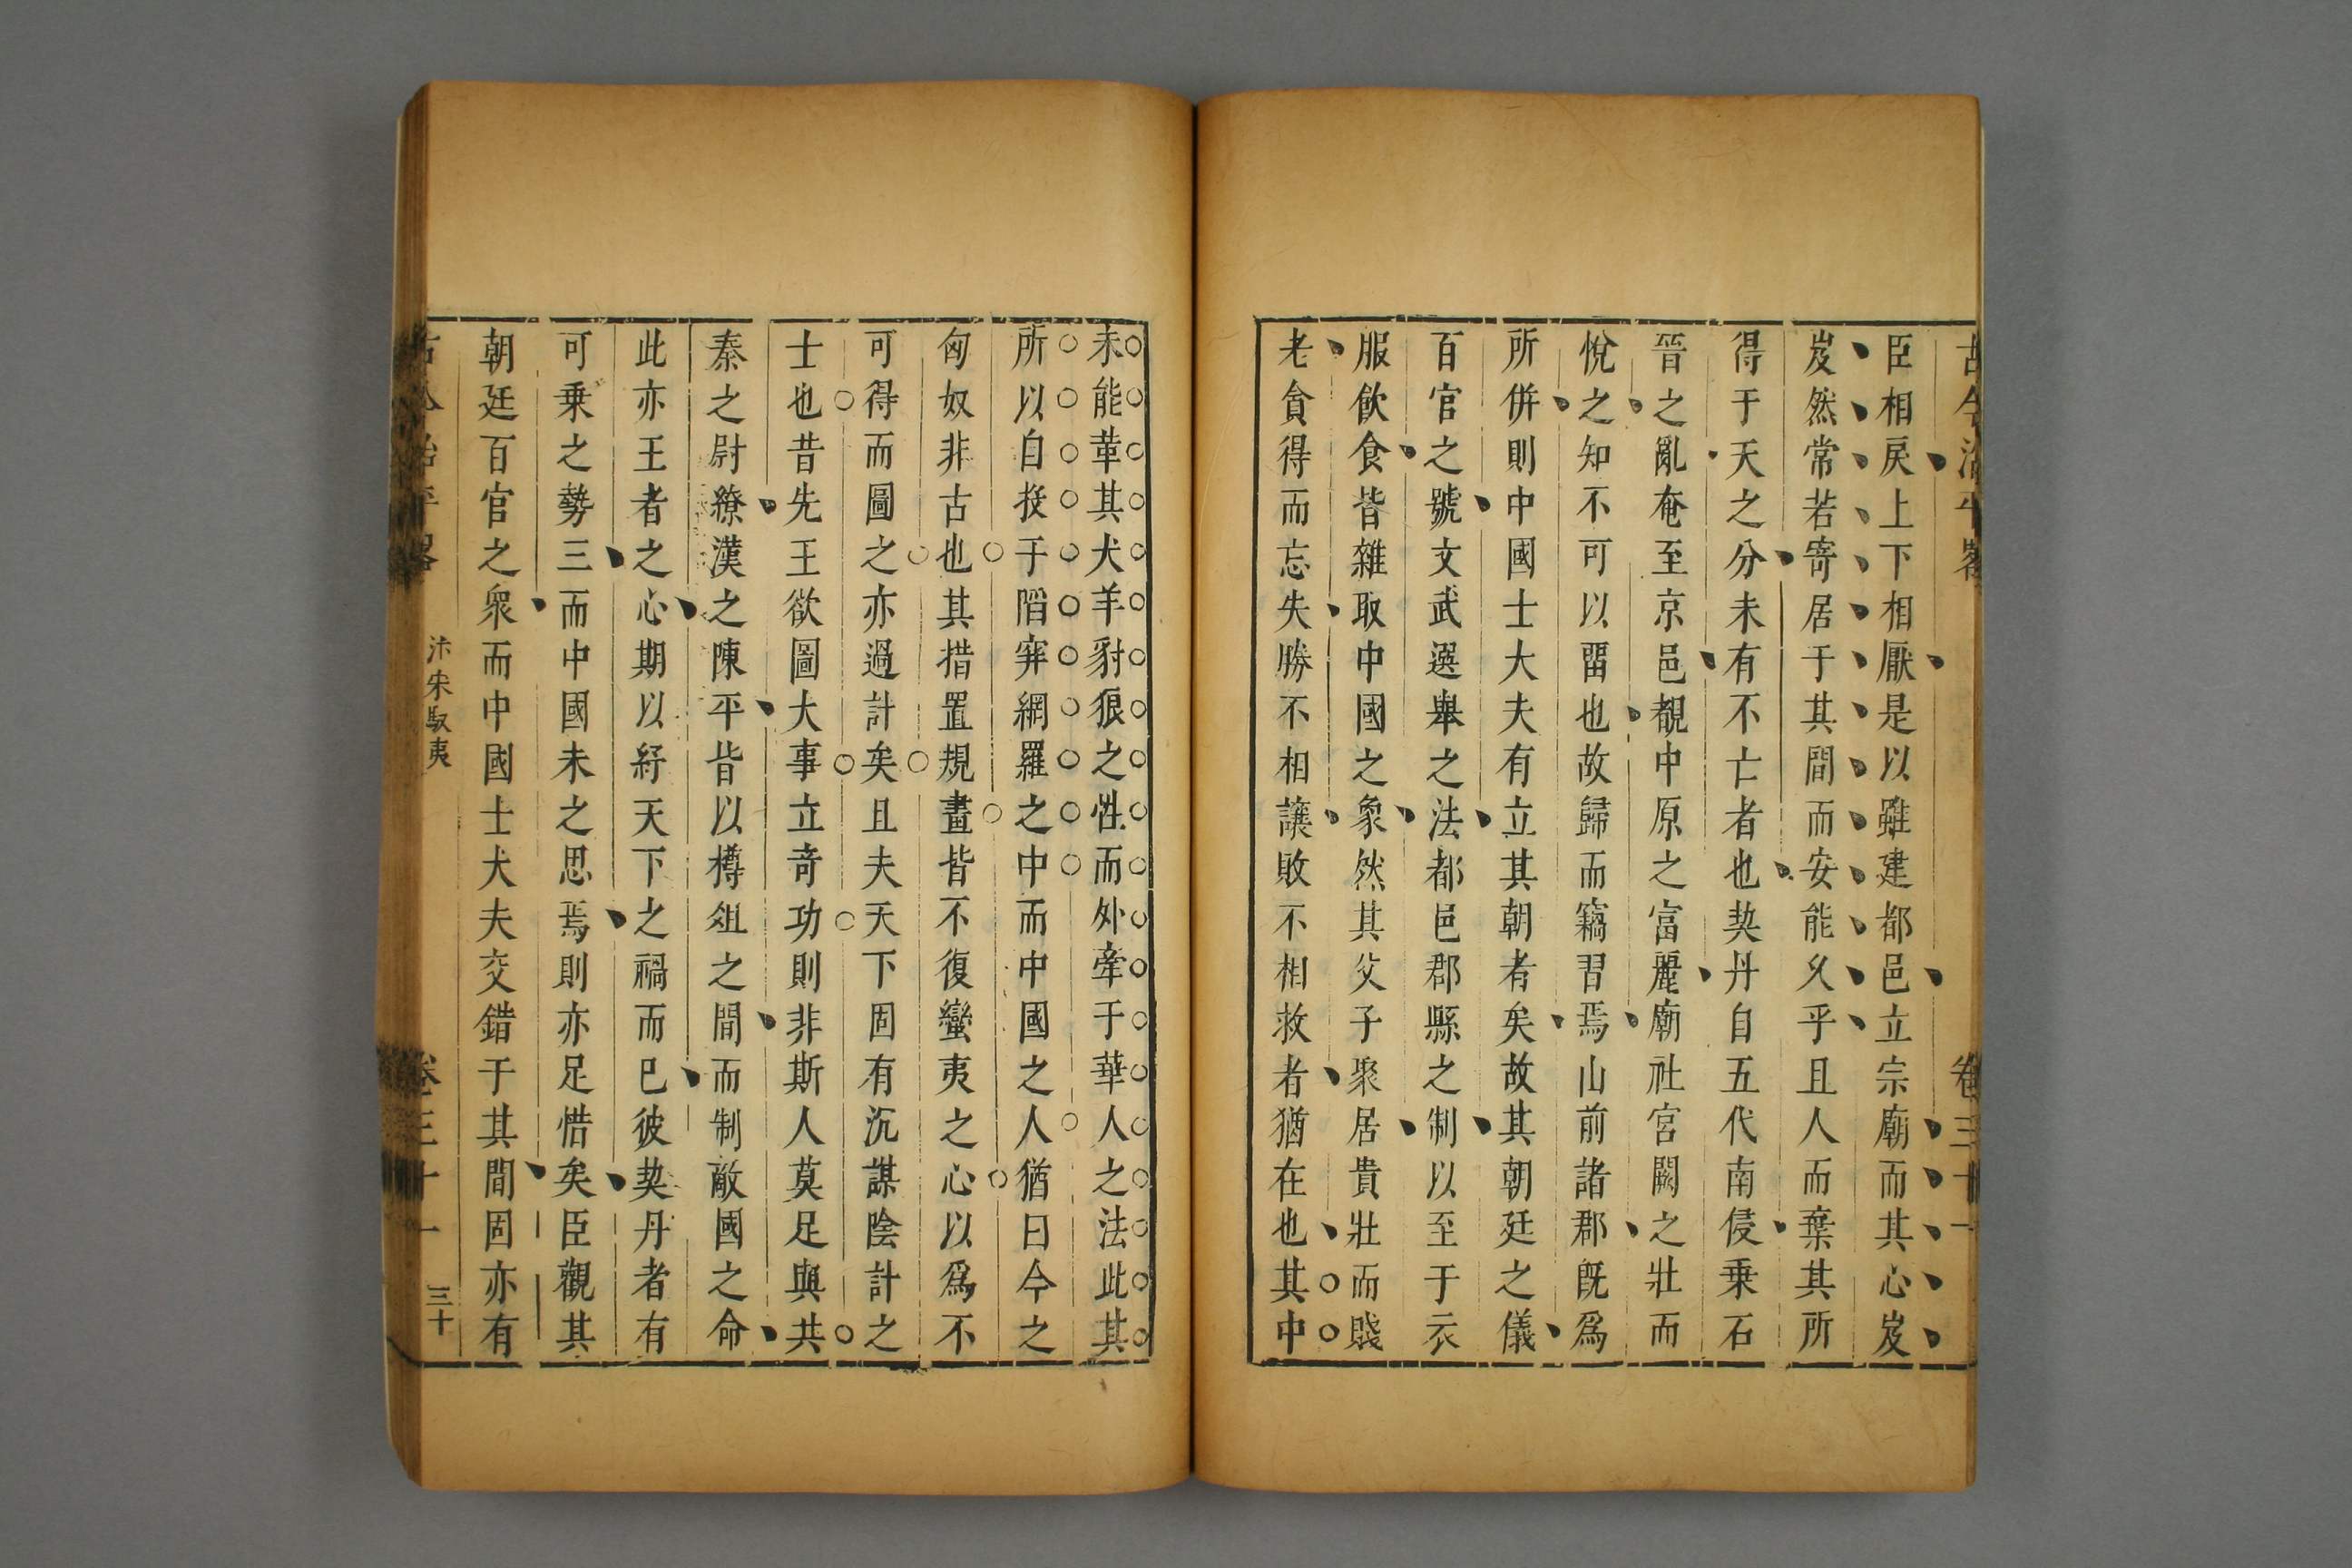 古今治平畧
卷三十一
臣相戾上下相厭是以雖建都邑立宗廟而其心岌
岌然常若寄居于其間而安能久乎且人而棄其所
得于天之分未有不亡者也契丹自五代南侵乗石
晉之亂奄至京邑覩中原之富麗廟社宮闕之壯而
悅之知不可以畱也故歸而竊習焉山前諸郡旣爲
所併則中國士大夫有立其朝者矣故其朝廷之儀
百官之號文武選舉之法都邑郡縣之制以至于衣
服飲食皆雜取中國之象然其父子聚居貴壯而賤
老貪得而忘失勝不相讓敗不相救者猶在也其中
未能革其犬羊豺狼之性而外牽于華人之法此其
所以自投于陷穽網羅之中而中國之人猶曰今之
匈奴非古也其措置規畫皆不復蠻夷之心以爲不
可得而圖之亦過計矣且夫天下固有沉謀陰計之
士也昔先王欲圖大事立奇功則非斯人莫足與共
秦之尉繚漢之陳平皆以樽俎之間而制敵國之命
此亦王者之心期以紓天下之禍而已彼契丹者有
可乗之勢三而中國未之思焉則亦足惜矣臣觀其
朝廷百官之衆而中國士大夫交錯于其間固亦有
汴宋馭夷
卷三十一
三十